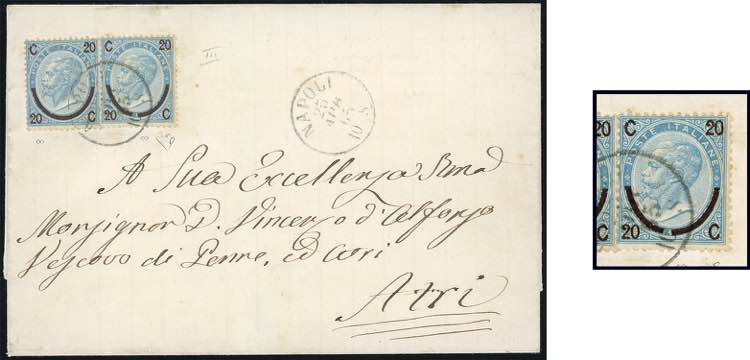 C 20 C 20
POSTE ITALIANE
20 C 20 C
III
NAPOLI
25
APR
65
10 S
A Sua Eccellenza Rma
Monsignor D. Vincenzo d'Alfonso
Vescovo di Penne, ed Atri
Atri
C 20
POSTE ITALIANE
20 C